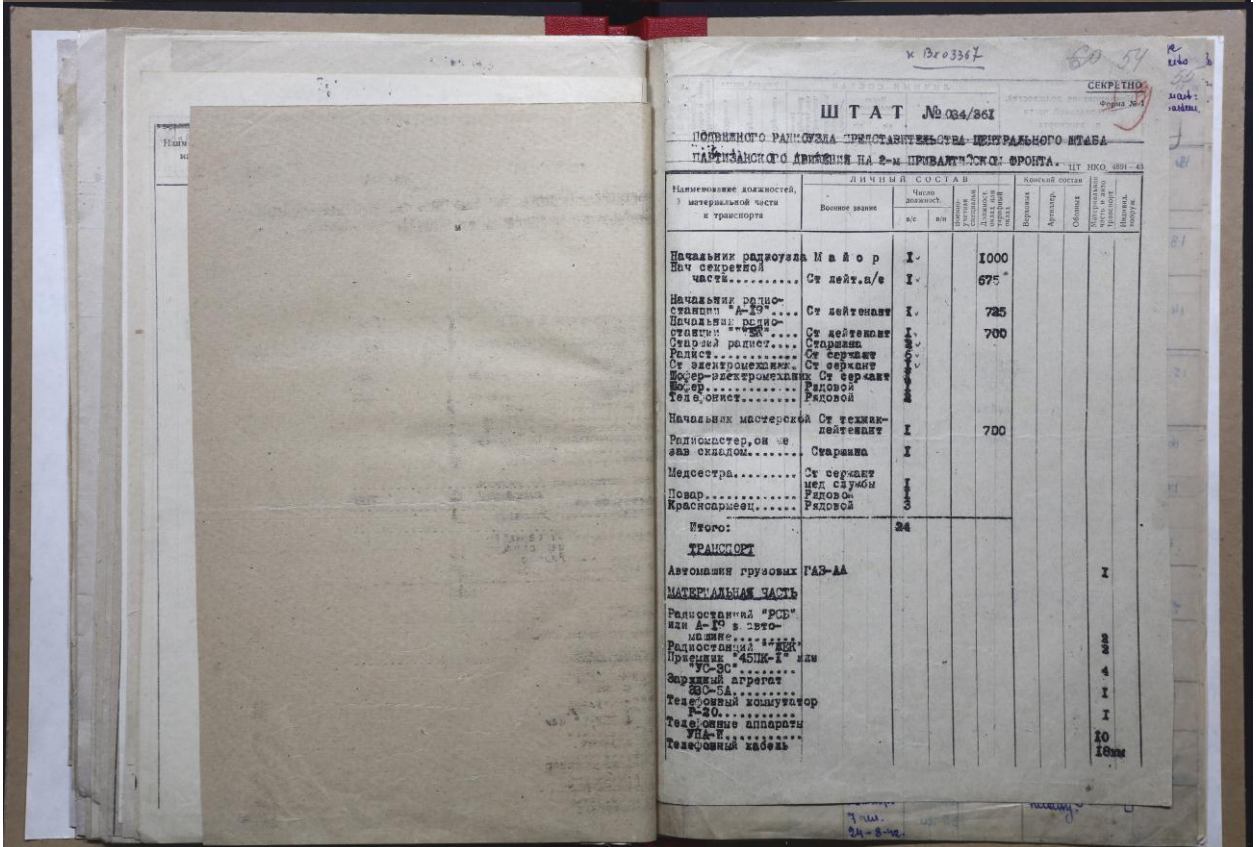 к Вх 03367
60 54
СЕКРЕТНО
Форма № 1
ШТАТ № 034/361
ПОДВИЖНОГО РАДИОУЗЛА ПРЕДСТАВИТЕЛЬСТВА ЦЕНТРАЛЬНОГО ШТАБА
ПАРТИЗАНСКОГО ДВИЖЕНИЯ НА 2-м ПРИБАЛТИЙСКОМ ФРОНТА.
ЦТ НКО 4891—43
Наименование должностей, материальной части и транспорта
ЛИЧНЫЙ СОСТАВ
Конский состав
Военное звание
Число должност.
в/с
в/н
Военно-учетная специальн.
Должност. оклад или тарифный оклад
Верховых
Артиллер.
Обозных
Материальная часть и авто транспорт
Индивид. вооруж.
Начальник радиоузла Майор I 1000
Нач секретной
части.......... Ст лейт.а/с I 675
Начальник радио-
станции "А-19".... Ст лейтенант I 725
Начальник радио-
Ст лейтенант I 700
Старший радист.... Старшина
Радист............ Ст сержант
Ст электромеханик. Ст сержант
Шофер-электромеханик Ст сержант
Шофер........... Рядовой
Телефонист........ Рядовой
Начальник мастерской Ст техник-
лейтенант I 700
Радиомастер,он же
зав складом........ Старшина I
Медсестра......... Ст сержант
мед службы I
Повар............. Рядовой
Красноармеец...... Рядовой 3
Итого: 24
ТРАНСПОРТ
Автомашин грузовых ГАЗ-АА I
МАТЕРИАЛЬНАЯ ЧАСТЬ
Радиостанций "РСБ"
или А-19 в авто-
машине......... 2
Радиостанций
Приемник "45ПК-1" или
"УС-3С"........ 4
Зарядный агрегат
I
Телефонный коммутатор
Р-20........... I
Телефонные аппараты
УНА-И.......... 10
Телефонный кабель 18км
7 чел.
24-8-42.